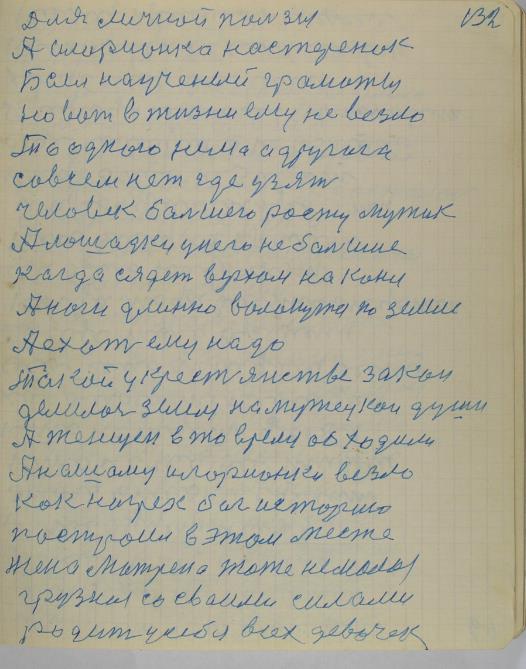 132
Для личной ползы
А иларионка настеренок
Бали наученый грамоты
но вот в жизни ему не везло
То одного нема адругага
совсем нет где узят
человек балшего росту мужик
А лошадки унего небалшие
кагда сядет верхом на кони
А ноги длинно валакутса по земле
А ехат ему надо
Такой у крестянстве закон
делилас земля на мужецкои души
А женщен в то время обходили
А нашаму иларионки везло
как нагрех бог историю
построил в этом месте
жена Матрена тоже немолоя
грузная со сваими силами
родит усебя всех девочек